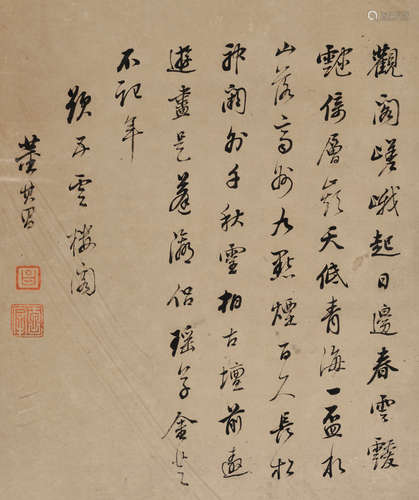 觀閣嵯峨起日邊春雲靉
靆倚層巔天低青海一盃水
山落齊州九點煙百尺長松
神閣外千秋柏古壇前遨
遊盡是蓬瀛侶瑤草金芝
不記年
題五雲樓閣
董其昌